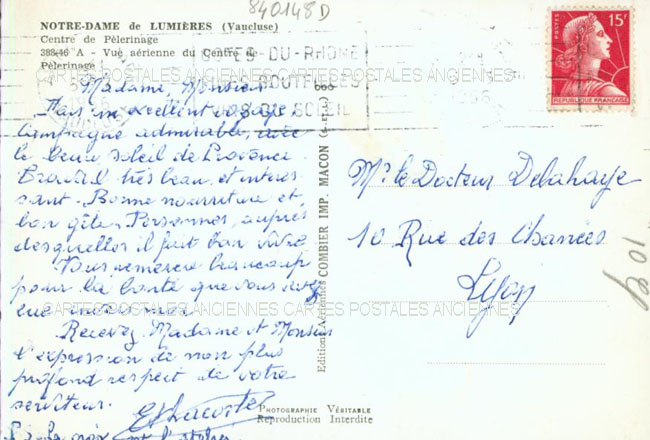 840148D
NOTRE-DAME de LUMIÈRES (Vaucluse)
Centre de Pèlerinage
388-46 A - Vue aérienne du Centre de
Pèlerinage
DU-RHONE
BOUTEILLES
DE SOLEIL
POSTES
15F
REPUBLIQUE FRANÇAISE
CARTES POSTALES ANCIENNES CARTES POSTALES ANCIENNES
Madame, Monsieur
Fais un excellent voyage,
Campagne admirable, avec
le beau soleil de Provence.
Travail très beau et intéres-
sant. Bonne nourriture et
bon gîte. Personnes, auprès
desquelles il fait bon vivre
Vous remercie beaucoup
pour la bonté que vous avez
eue envers moi.
CARTES POSTALES ANCIENNES CARTES POSTALES ANCIENNES
Recevez, Madame et Monsieur
l'expression de mon plus
profond respect de votre
serviteur.
Lacoste
La croix
l'atelier
Editions Aériennes COMBIER IMP. MACON
PHOTOGRAPHIE VÉRITABLE
Reproduction Interdite
Mr le Docteur Delahaye
10 Rue des
Lyon